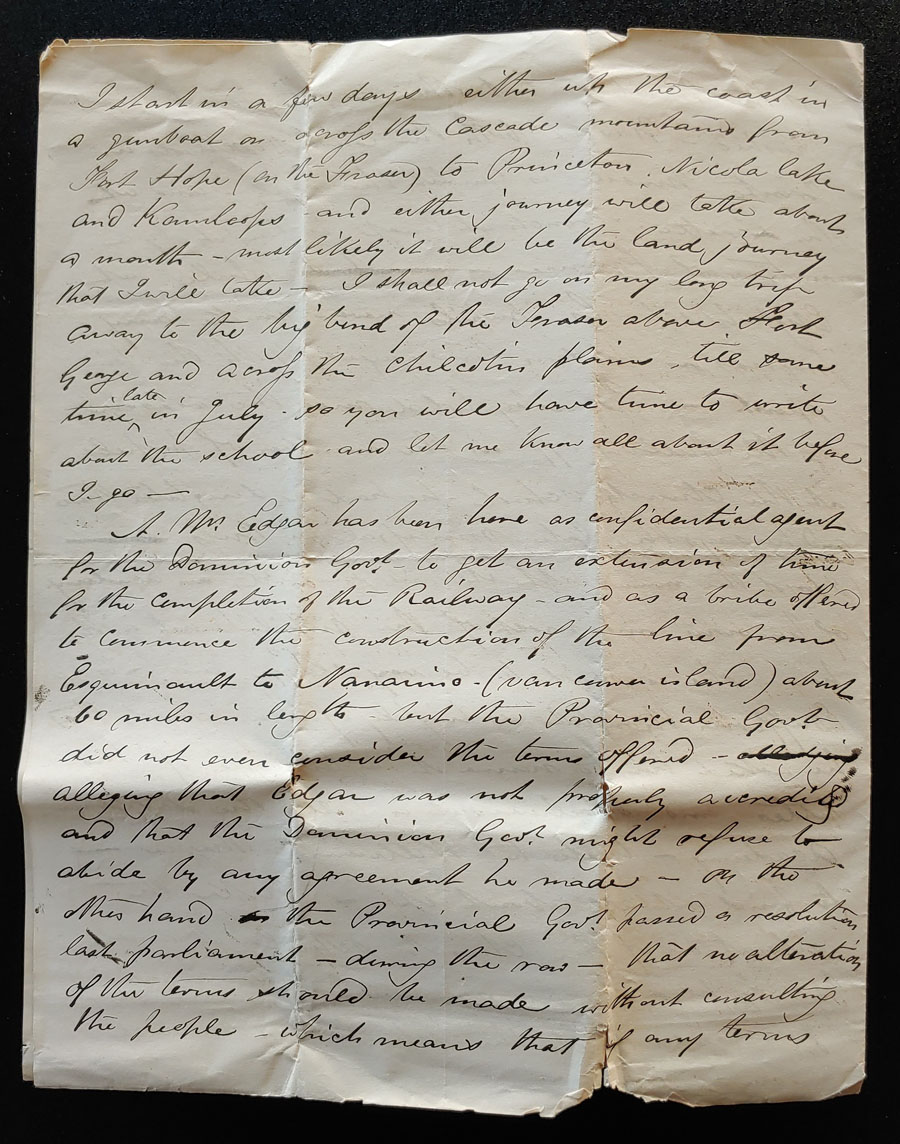 I start in a few days either up the coast in
a gunboat or across the Cascade mountains from
Fort Hope (on the Fraser) to Princeton, Nicola lake
and Kamloops - and either journey will take about
a month - most likely it will be the land journey
that I will take - I shall not go on my long trip
away to the big bend of the Fraser above Fort
George and across the Chilcotin plains, till some
time late in July - so you will have time to write
about the school and let me know all about it before
I go -
A Mr. Edgar has been here as confidential agent
for the Dominion Govt. - to get an extension of time
for the completion of the Railway - and as a bribe offered
to commence the construction of the line from
Esquimault to Nanaimo - (vancouver island) about
60 miles in length - but the Provincial Govt
did not even consider the terms offered -
alleging that Edgar was not properly accredited
and that the Dominion Govt. might refuse to
abide by any agreement he made - on the
other hand the Provincial Govt. passed a resolution
last parliament - during the row - that no alteration
of the terms should be made without consulting
the people - which means that if any terms